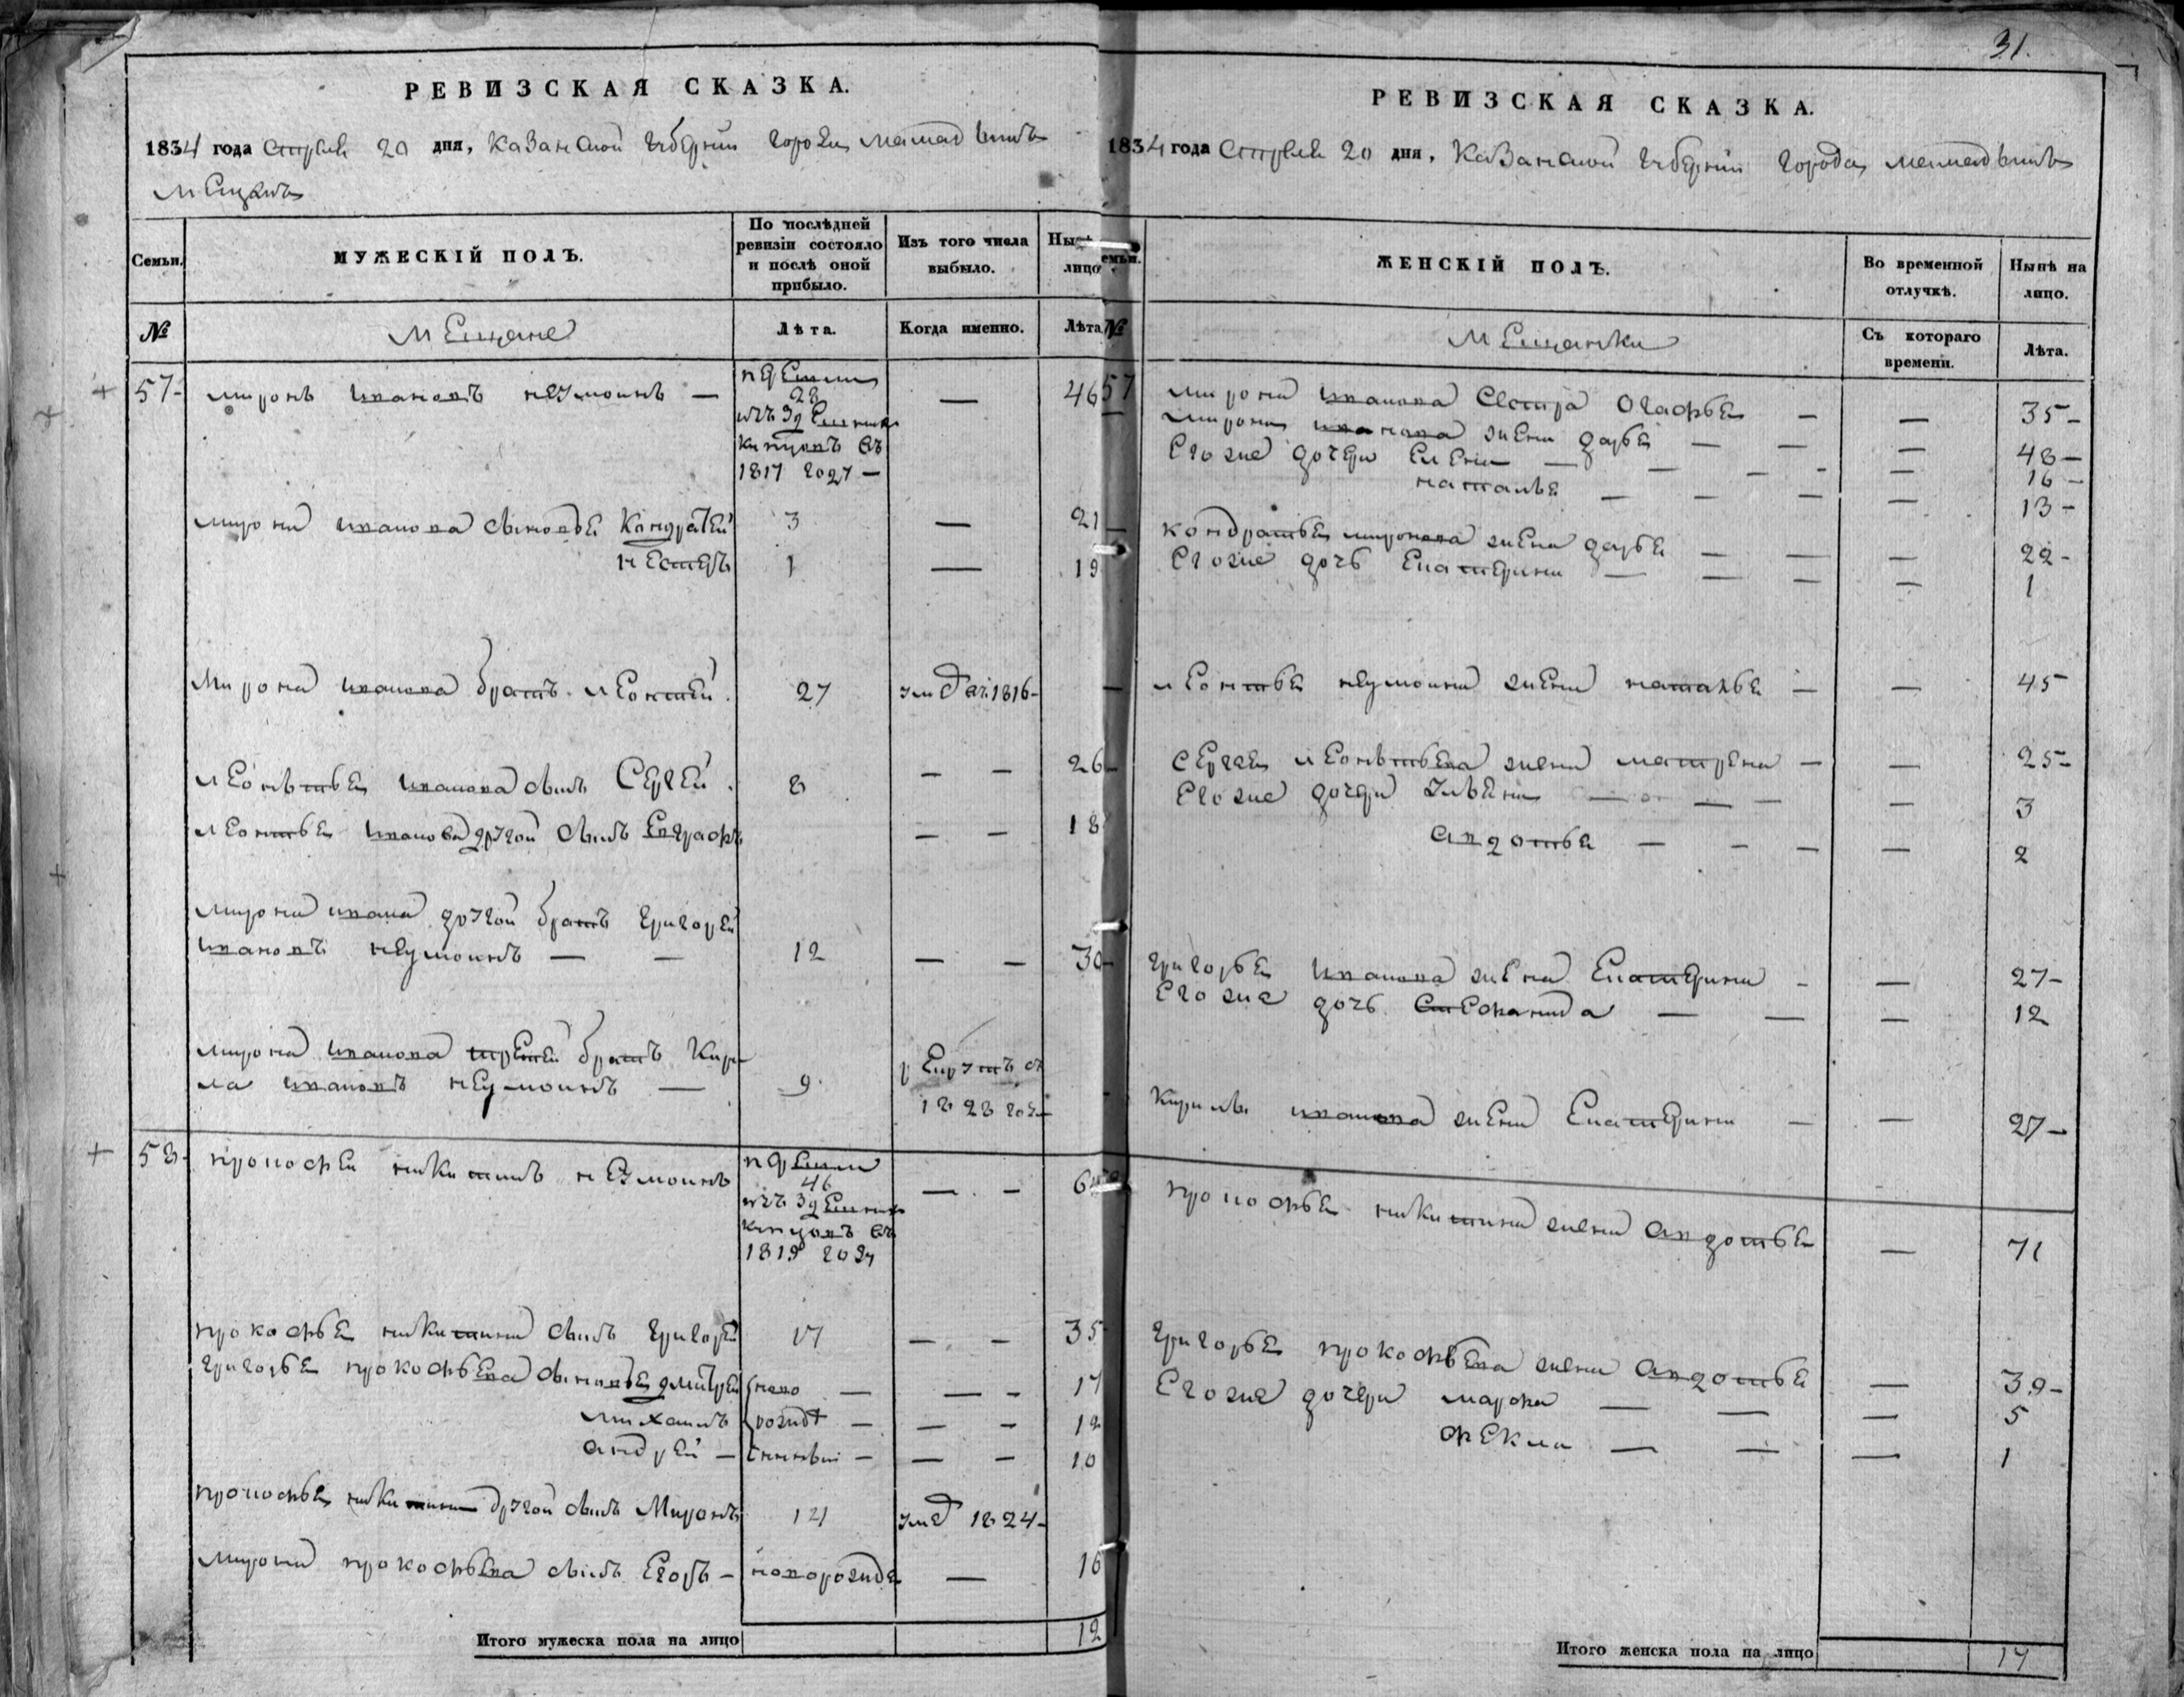 РЕВИЗСКАЯ СКАЗКА.
1834 года апреля 20 дня, Казанской губернии города мамадыша
мещанъ
Семьи.
МУЖЕСКІЙ ПОЛЪ.
По послѣдней ревизіи состояло и послѣ оной прибыло.
Изъ того числа выбыло.
лицо
№
мещане
Лѣта.
Когда именно.
Лѣта
57
миронъ ивановъ неумоинъ — 28 — 46
изъ здешних
купцовъ въ
1817 году —
мирона иванова сыновья Кондратей 3 — 21
нестеръ 1 — 19
Мирона иванова братъ леонтей 27 1816
леонтьея иванова сынъ Сергей 8 — — 26
леонтьея иванова другой сынъ Евграфъ — — 18
мирона ивана другой братъ григорей
ивановъ неумоинъ — — 12 — — 30
мирона иванова третей братъ Кири
ла ивановъ неумоинъ — 9 рекрутъ въ
1828 году
58 прокофей никитинъ неумоинъ 46 — —
изъ здешних
купцовъ въ
1819 году
прокофья никитина сынъ григорей 17 — — 35
григорья прокофьева сыновья дмитрей ново — — — 17
михаилъ рожд — — — 12
андрей — — — — 10
прокофья никитина другой сынъ Миронъ 14 1824
мирона прокофьева сынъ Егоръ — новорожде — 16
Итого мужеска пола на лицо 12
31.
РЕВИЗСКАЯ СКАЗКА.
1834 года апреля 20 дня, Казанской губернии города мамадыша
емьи.
ЖЕНСКІЙ ПОЛЪ.
Во временной отлучкѣ.
Нынѣ на лицо.
№
мещанки
Съ котораго времени.
Лѣта.
57 мирона иванова сестра Агафья — — 35
мирона иванова жена дарья — — — 48
Его же дочери Елена — — — 16
наталья — — — — 13
кондратья миронова жена дарья — — — 22
Его же дочь Екатерина — — — — 1
леонтья неумоина жена наталья — — 45
Сергея леонтьева жена матрена — — 25
Его же дочери — — — 3
авдотья — — — — 2
григорья иванова жена Екатерина — — 27
Его же дочь — — — 12
Кирилы иванова жена Екатерина — — 27
прокофья никитина жена авдотья — 71
григорья прокофьева жена авдотья — 39
Его же дочери марфа — — — 5
фекла — — — 1
Итого женска пола на лицо 17